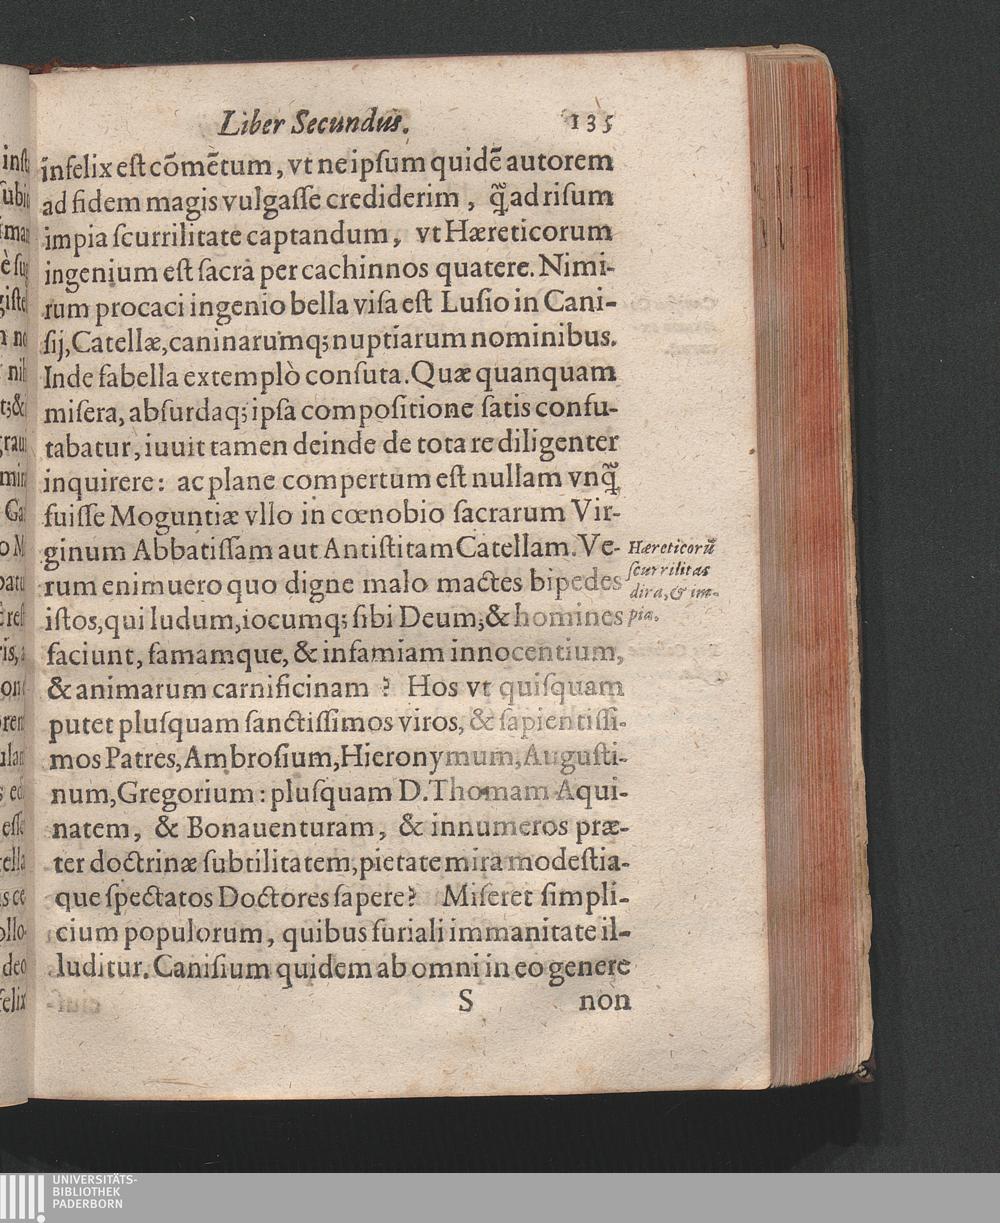 Liber Secundus. 135
infelix eſt cõmẽtum, vt ne ipſum quidẽ autorem
ad fidem magis vulgaſſe crediderim, q̃ ad riſum
impia ſcurrilitate captandum, vt Hæreticorum
ingenium eſt ſacra per cachinnos quatere. Nimi-
rum procaci ingenio bella viſa eſt Luſio in Cani-
ſij, Catellæ, caninarumq; nuptiarum nominibus.
Inde fabella extemplò conſuta. Quæ quanquam
miſera, abſurdaq; ipſa compoſitione ſatis confu-
tabatur, iuuit tamen deinde de tota re diligenter
inquirere: ac plane compertum eſt nullam vnq̃
fuiſſe Moguntiæ vllo in cœnobio ſacrarum Vir-
ginum Abbatiſſam aut Antiſtitam Catellam. Ve-
rum enimuero quo digne malo mactes bipedes
iſtos, qui ludum, iocumq; ſibi Deum, & homines
faciunt, famamque, & infamiam innocentium,
& animarum carnificinam? Hos vt quiſquam
putet pluſquam ſanctiſſimos viros, & ſapientiſſi-
mos Patres, Ambroſium, Hieronymum, Auguſti-
num, Gregorium: pluſquam D. Thomam Aqui-
natem, & Bonauenturam, & innumeros præ-
ter doctrinæ ſubtilitatem, pietate mira modeſtia-
que ſpectatos Doctores ſapere? Miſeret ſimpli-
cium populorum, quibus furiali immanitate il-
luditur. Caniſium quidem ab omni in eo genere
S non
Hæreticorũ
ſcurrilitas
dira, & im-
pia.
UNIVERSITÄTS-
BIBLIOTHEK
PADERBORN